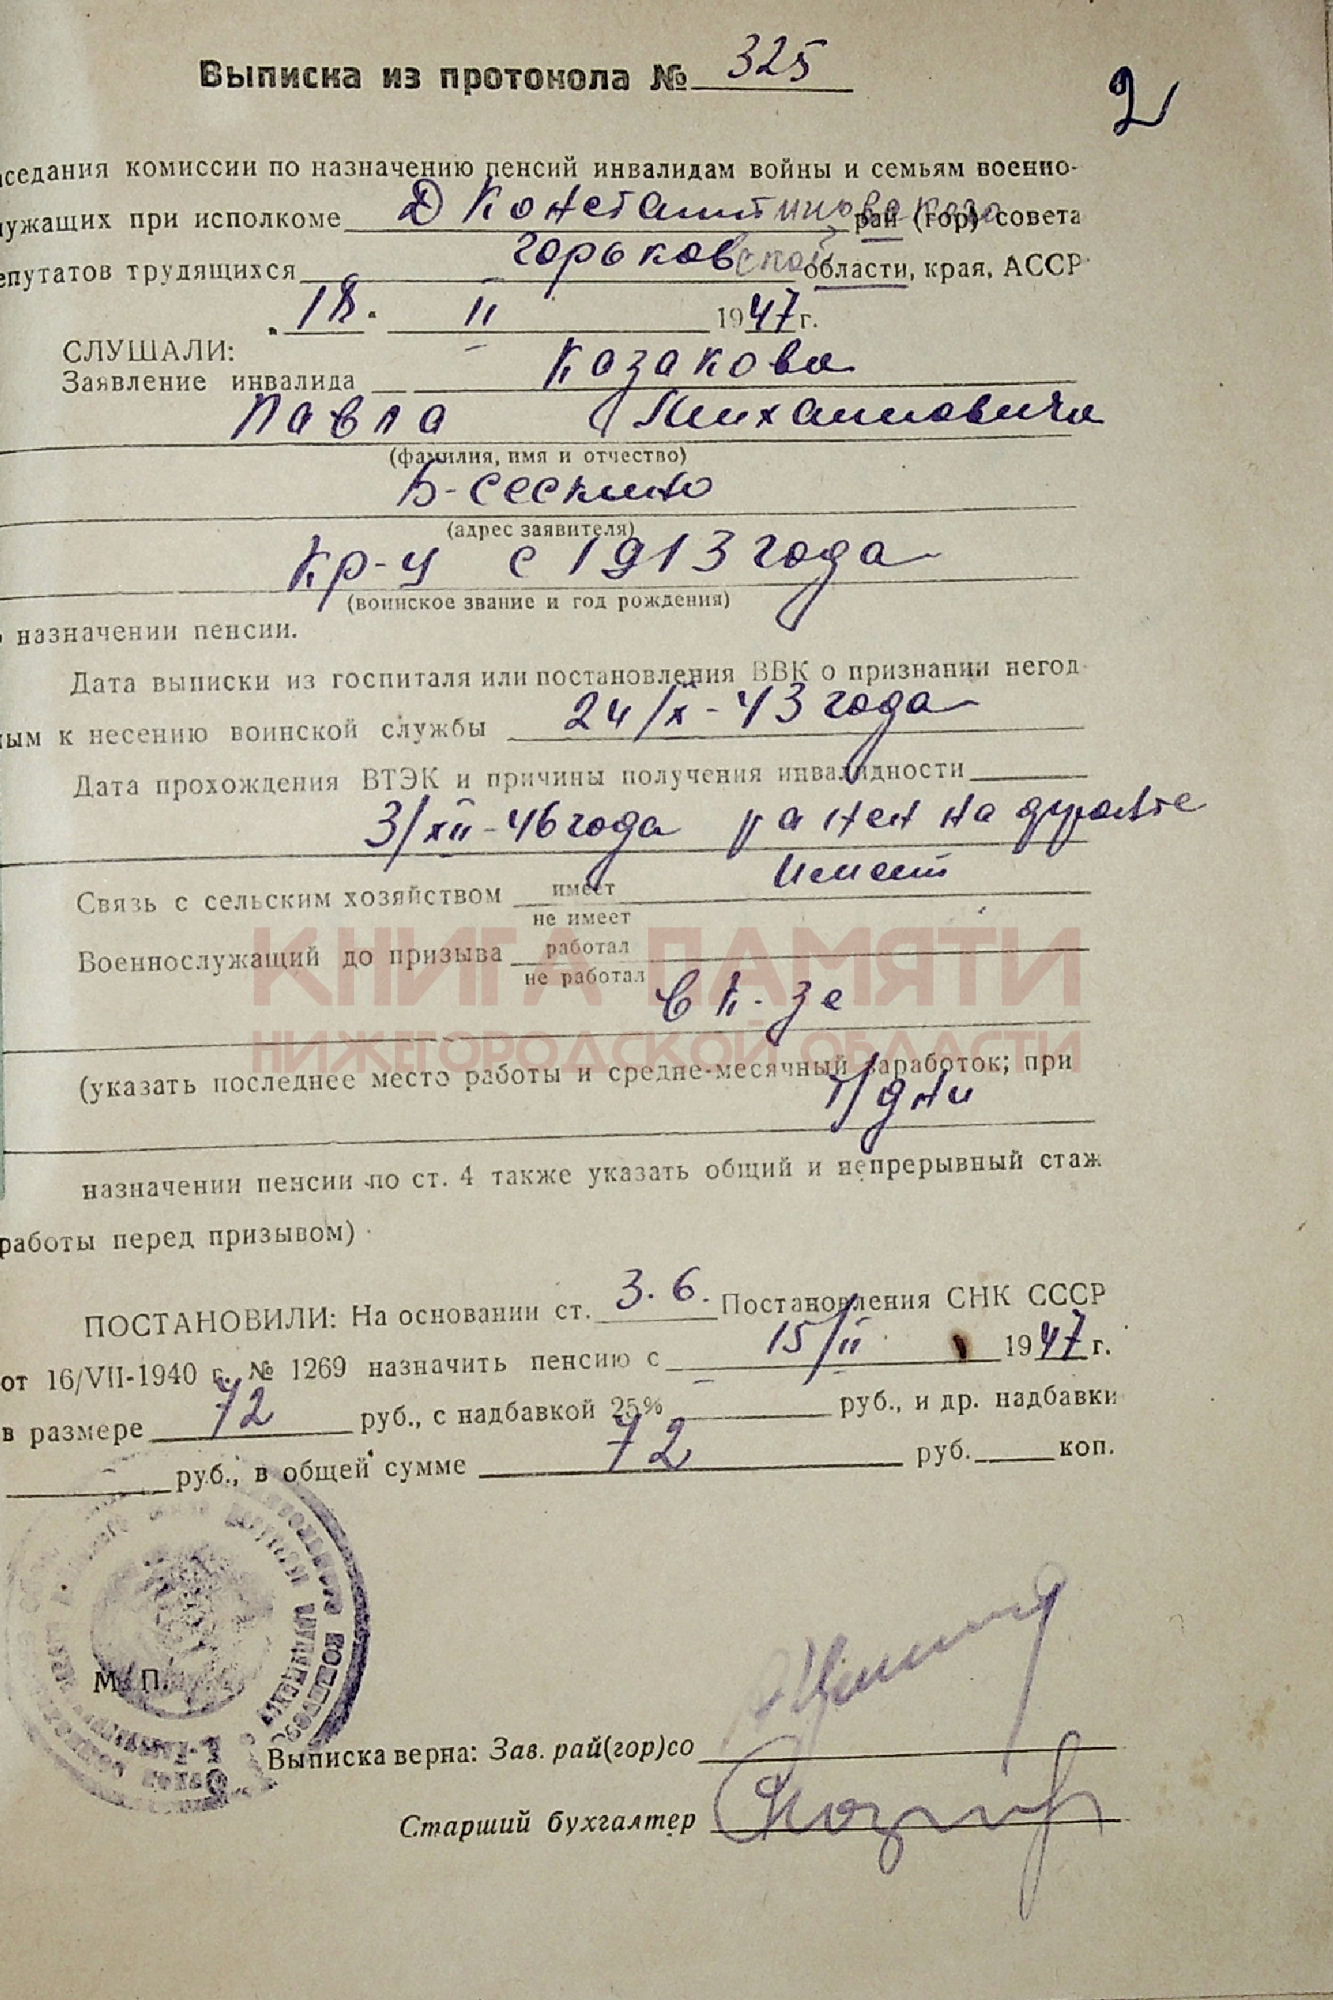 Выписка из протокола № 325
2
аседания комиссии по назначению пенсий инвалидам войны и семьям военно-
лужащих при исполкоме Д Константиновского рай (гор) совета
епутатов трудящихся Горьковской области, края, АССР
18. II 1947 г.
СЛУШАЛИ:
Заявление инвалида Казакова
Павла Михайловича
(фамилия, имя и отчество)
Б-Сескино
(адрес заявителя)
Кр-ц с 1913 года
(воинское звание и год рождения)
о назначении пенсии.
Дата выписки из госпиталя или постановления ВВК о признании негод-
ным к несению воинской службы 24/X-43 года
Дата прохождения ВТЭК и причины получения инвалидности
3/XII-46 года ранен на фронте
Связь с сельским хозяйством имеет имеет
не имеет
Военнослужащий до призыва работал
не работал
в к-зе
КНИГА ПАМЯТИ
НИЖЕГОРОДСКОЙ ОБЛАСТИ
(указать последнее место работы и средне-месячный заработок; при
т/дни
назначении пенсии по ст. 4 также указать общий и непрерывный стаж
работы перед призывом)
ПОСТАНОВИЛИ: На основании ст. 3.6. Постановления СНК СССР
от 16/VII-1940 г. № 1269 назначить пенсию с 15/II 1947 г.
в размере 72 руб., с надбавкой 25% руб., и др. надбавки
руб., в общей сумме 72 руб. коп.
М. П.
Выписка верна: Зав. рай(гор)со
Старший бухгалтер